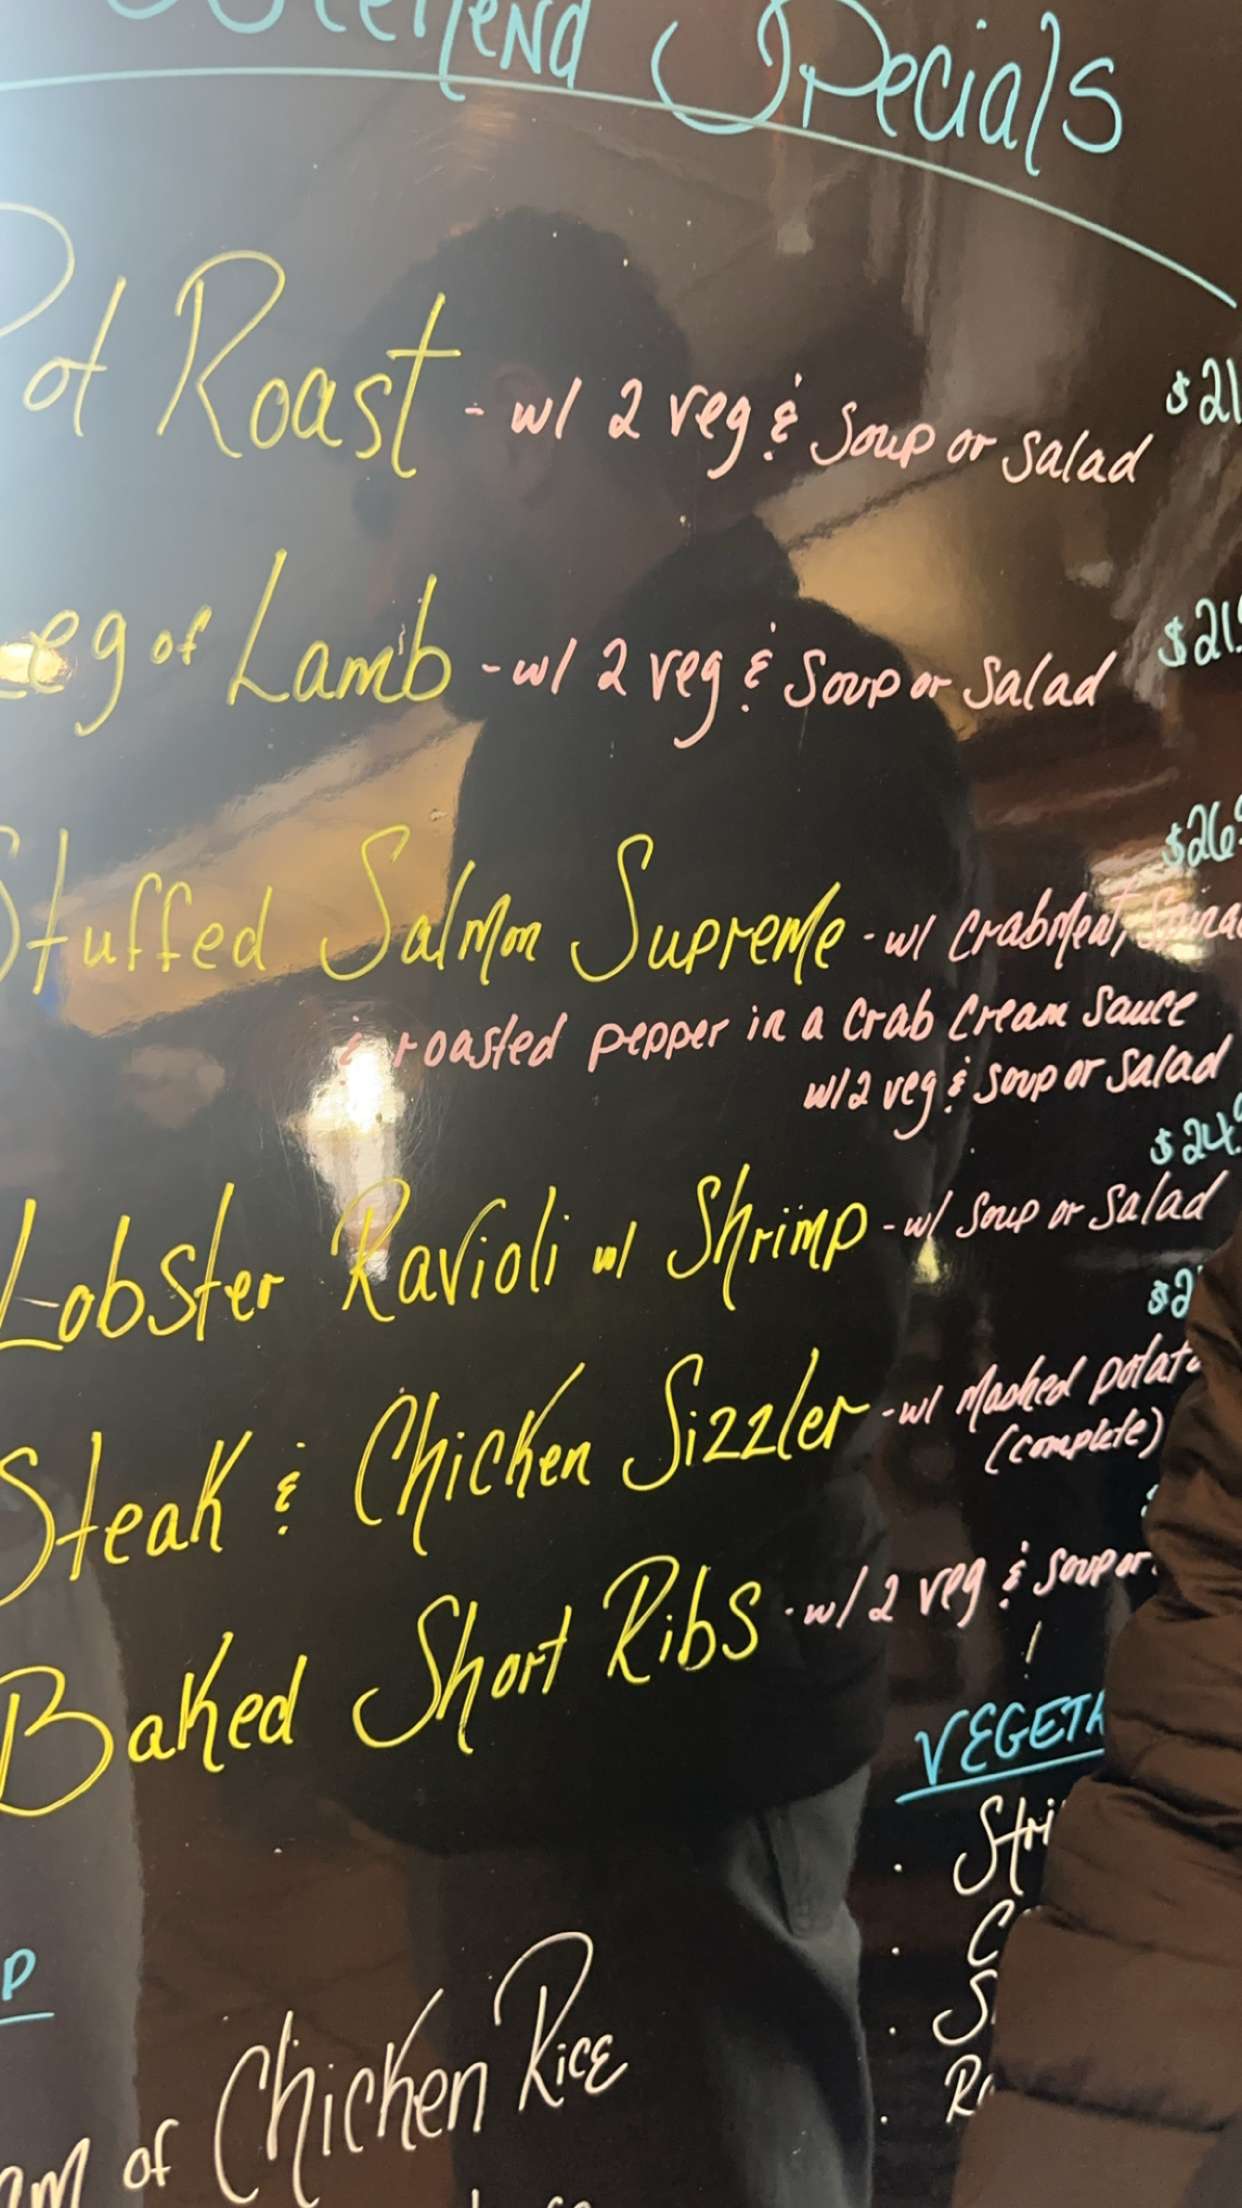 Weekend Specials
Pot Roast - w/ 2 veg & Soup or Salad $21
Leg of Lamb - w/ 2 veg & Soup or Salad $21.
Stuffed Salmon Supreme - w/ Crabmeat, $26
& roasted pepper in a Crab Cream Sauce
w/ 2 veg & Soup or Salad
$24.
Lobster Ravioli w/ Shrimp - w/ Soup or Salad
Steak & Chicken Sizzler - w/ Mashed
(complete)
Baked Short Ribs - w/ 2 veg & Soup or
of Chicken Rice